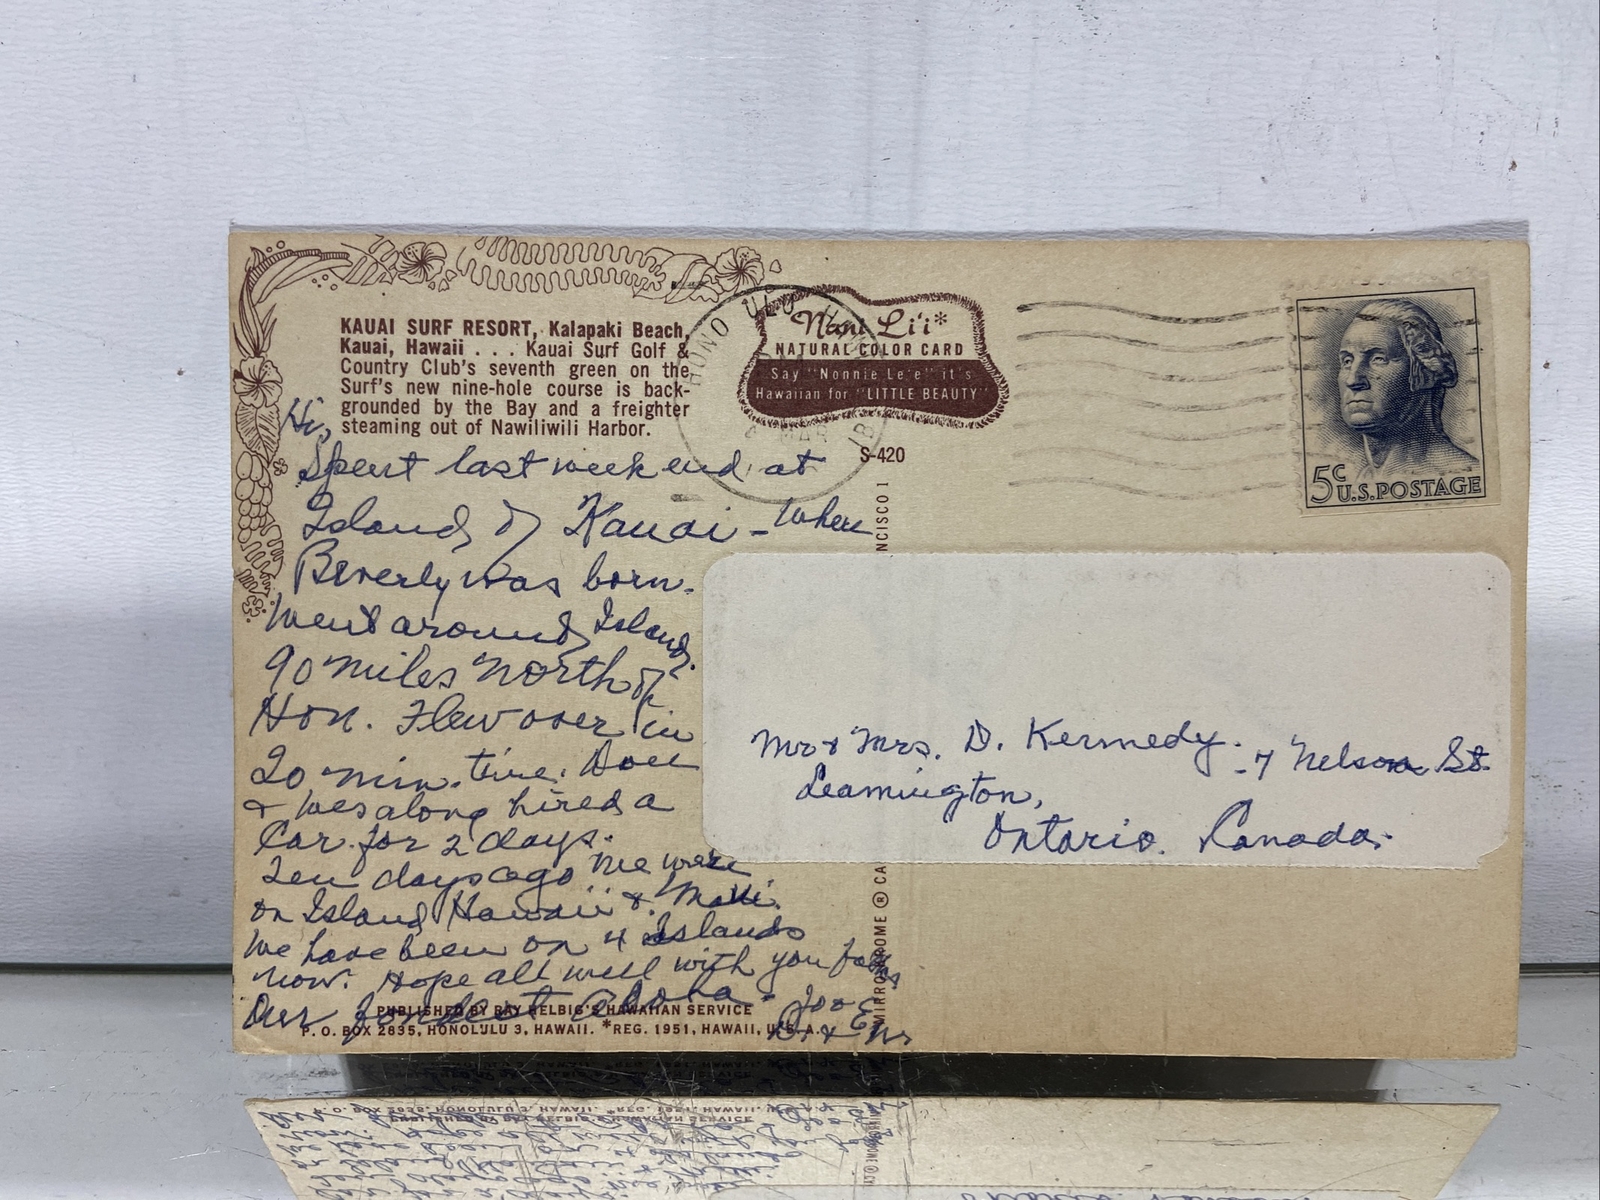 KAUAI SURF RESORT, Kalapaki Beach,
Kauai, Hawaii . . . Kauai Surf Golf &
Country Club's seventh green on the
Surf's new nine-hole course is back-
grounded by the Bay and a freighter
steaming out of Nawiliwili Harbor.
Nani Li'i*
NATURAL COLOR CARD
Say "Nonnie Le'e" it's
Hawaiian for "LITTLE BEAUTY"
S-420
HONOLULU
MAR
5c
U.S. POSTAGE
Hi,
Spent last week end at
Island of Kauai - when
Beverly was born.
Went around Island.
90 miles North of
Hon. Flew over in
20 min. time.
& Wes along hired a
Car for 2 days.
Ten days ago we were
on Island Hawaii & Maui.
We have been on 4 Islands
now. Hope all well with you folks
Our fondest aloha -
Mr & Mrs. D. Kennedy. - 7 Nelson St
Leamington,
Ontario. Canada.
NCISCO 1
MIRRO-KROME ® CA
PUBLISHED BY RAY HELBIG'S HAWAIIAN SERVICE
P.O. BOX 2835, HONOLULU 3, HAWAII. *REG. 1951, HAWAII, U.S.A.